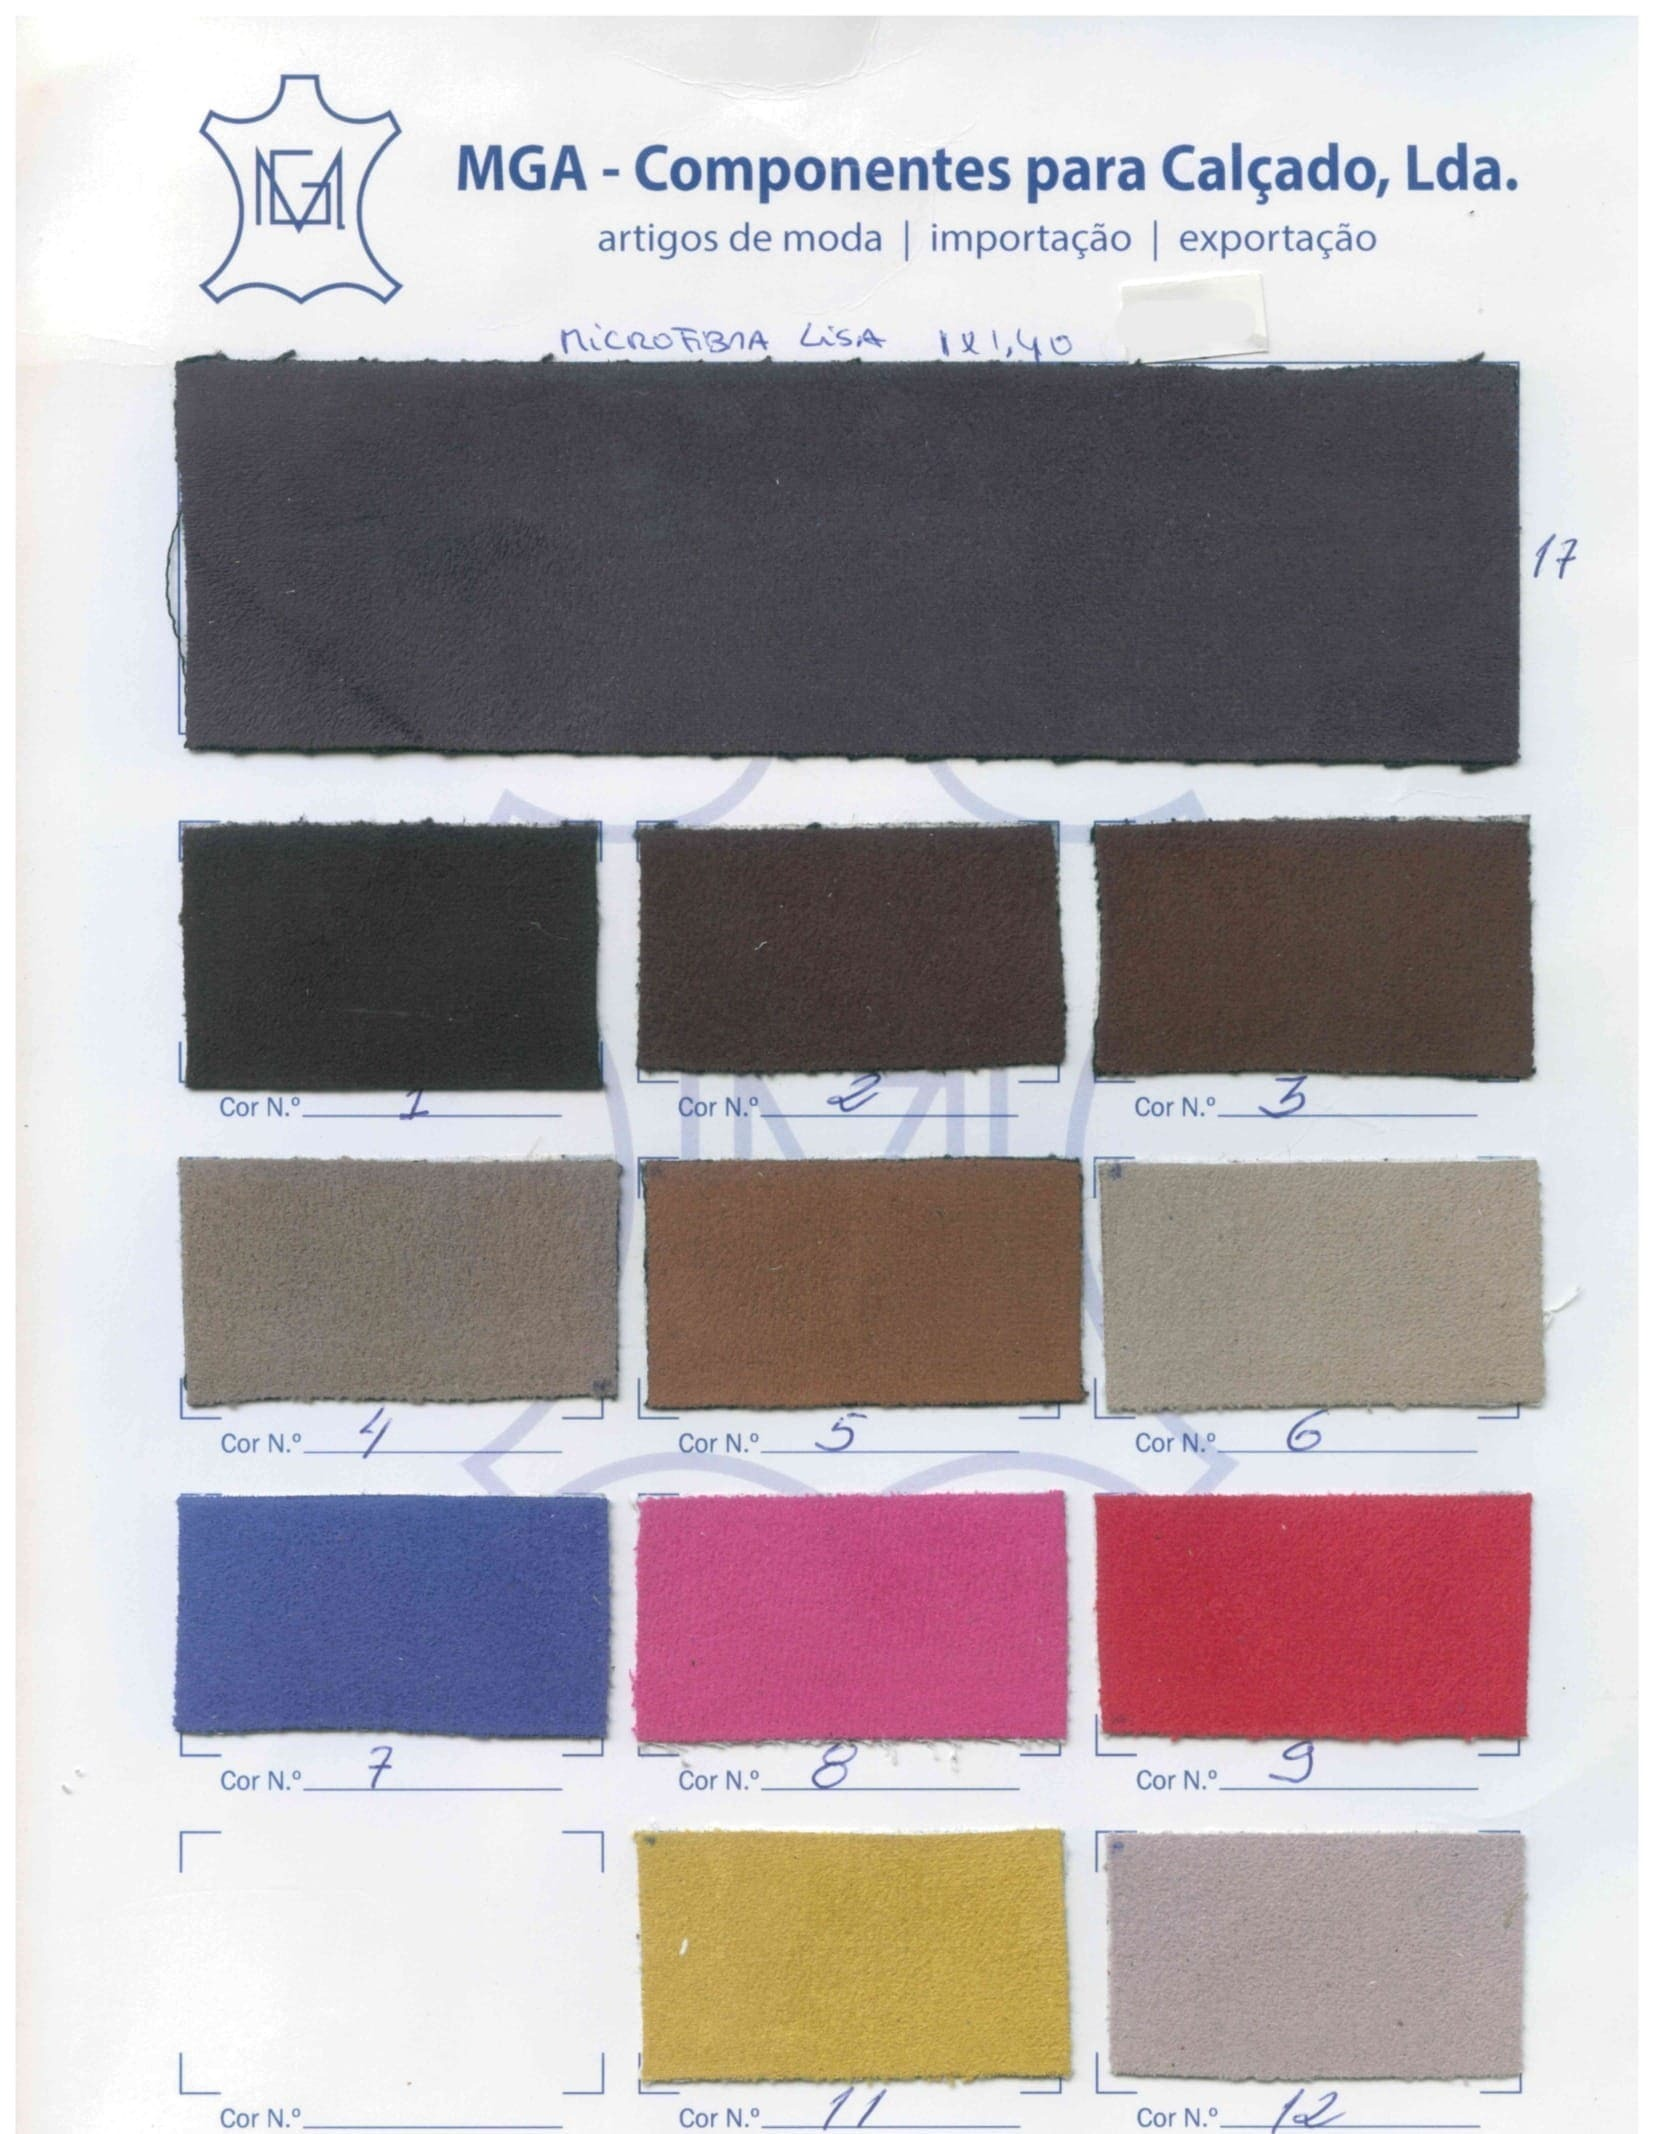 MGA
MGA - Componentes para Calçado, Lda.
artigos de moda | importação | exportação
MiCROFiBRA LiSA 1x1,40
17
Cor N.º 1
Cor N.º 2
Cor N.º 3
Cor N.º 4
Cor N.º 5
Cor N.º 6
Cor N.º 7
Cor N.º 8
Cor N.º 9
Cor N.º
Cor N.º 11
Cor N.º 12